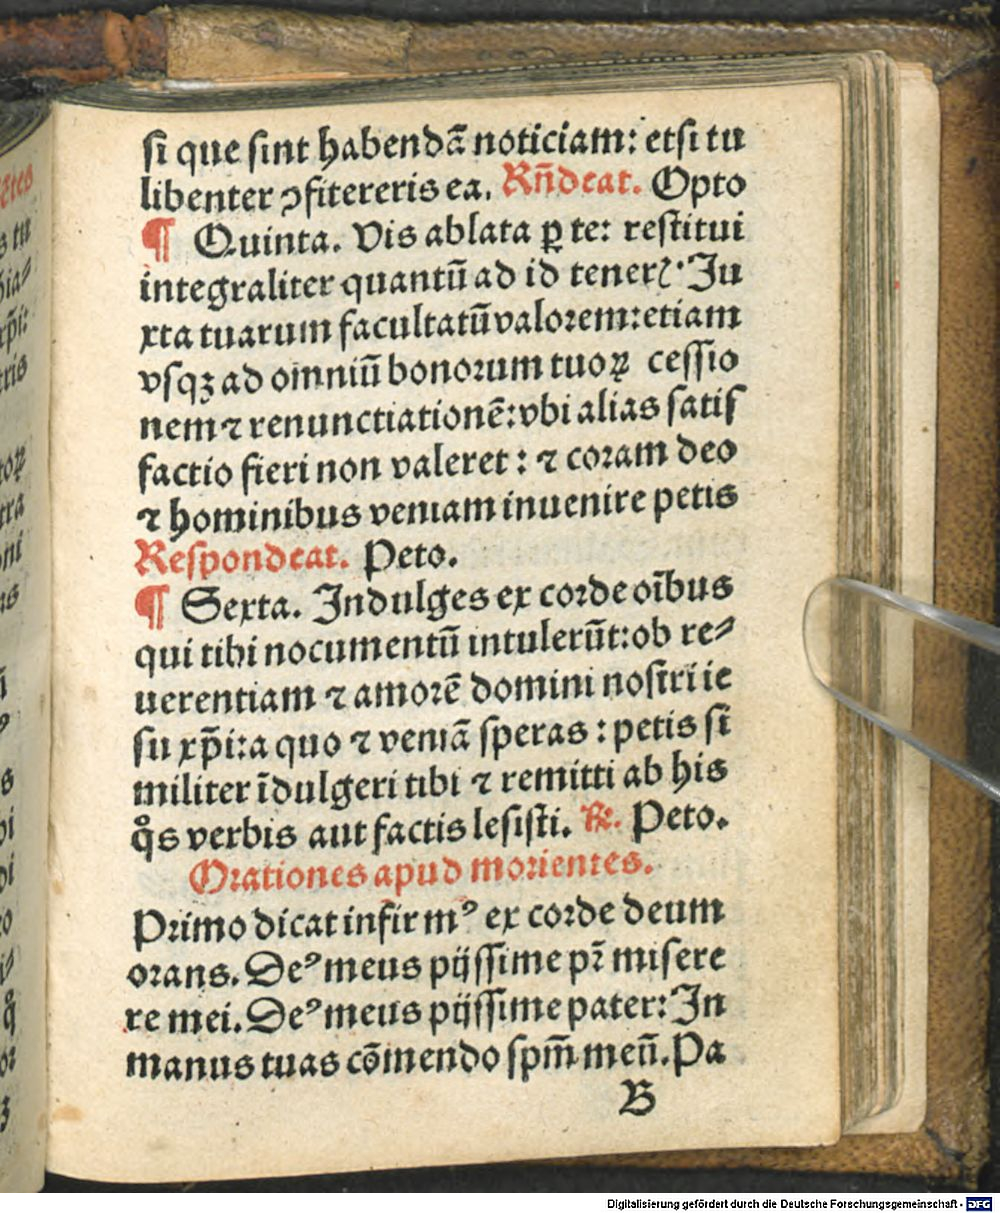 si que sint habendā noticiam: etsi tu
libenter ↄfitereris ea. Rn̄deat. Opto
¶ Quinta. Vis ablata ꝑ te: restitui
integraliter quantū ad id tenerꝭ. Iu
xta tuarum facultatū valorem: etiam
vsqꝫ ad omniū bonorum tuoꝝ cessio
nem ⁊ renunctiationē: vbi alias satis
factio fieri non valeret: ⁊ coram deo
⁊ hominibus veniam inuenire petis
Respondeat. Peto.
¶ Sexta. Indulges ex corde oībus
qui tibi nocumentū intulerūt: ob re⸗
uerentiam ⁊ amorē domini nostri ie
su xp̄i: a quo ⁊ veniā speras: petis si
militer īdulgeri tibi ⁊ remitti ab his
qͦs verbis aut factis lesisti. ℞. Peto.
Orationes apud morientes.
Primo dicat infirmꝰ ex corde deum
orans. Deꝰ meus pijssime pr̄ misere
re mei. Deꝰ meus pijssime pater: In
manus tuas cōmendo sp̄m meū. Pa
B
Digitalisierung gefördert durch die Deutsche Forschungsgemeinschaft - DFG